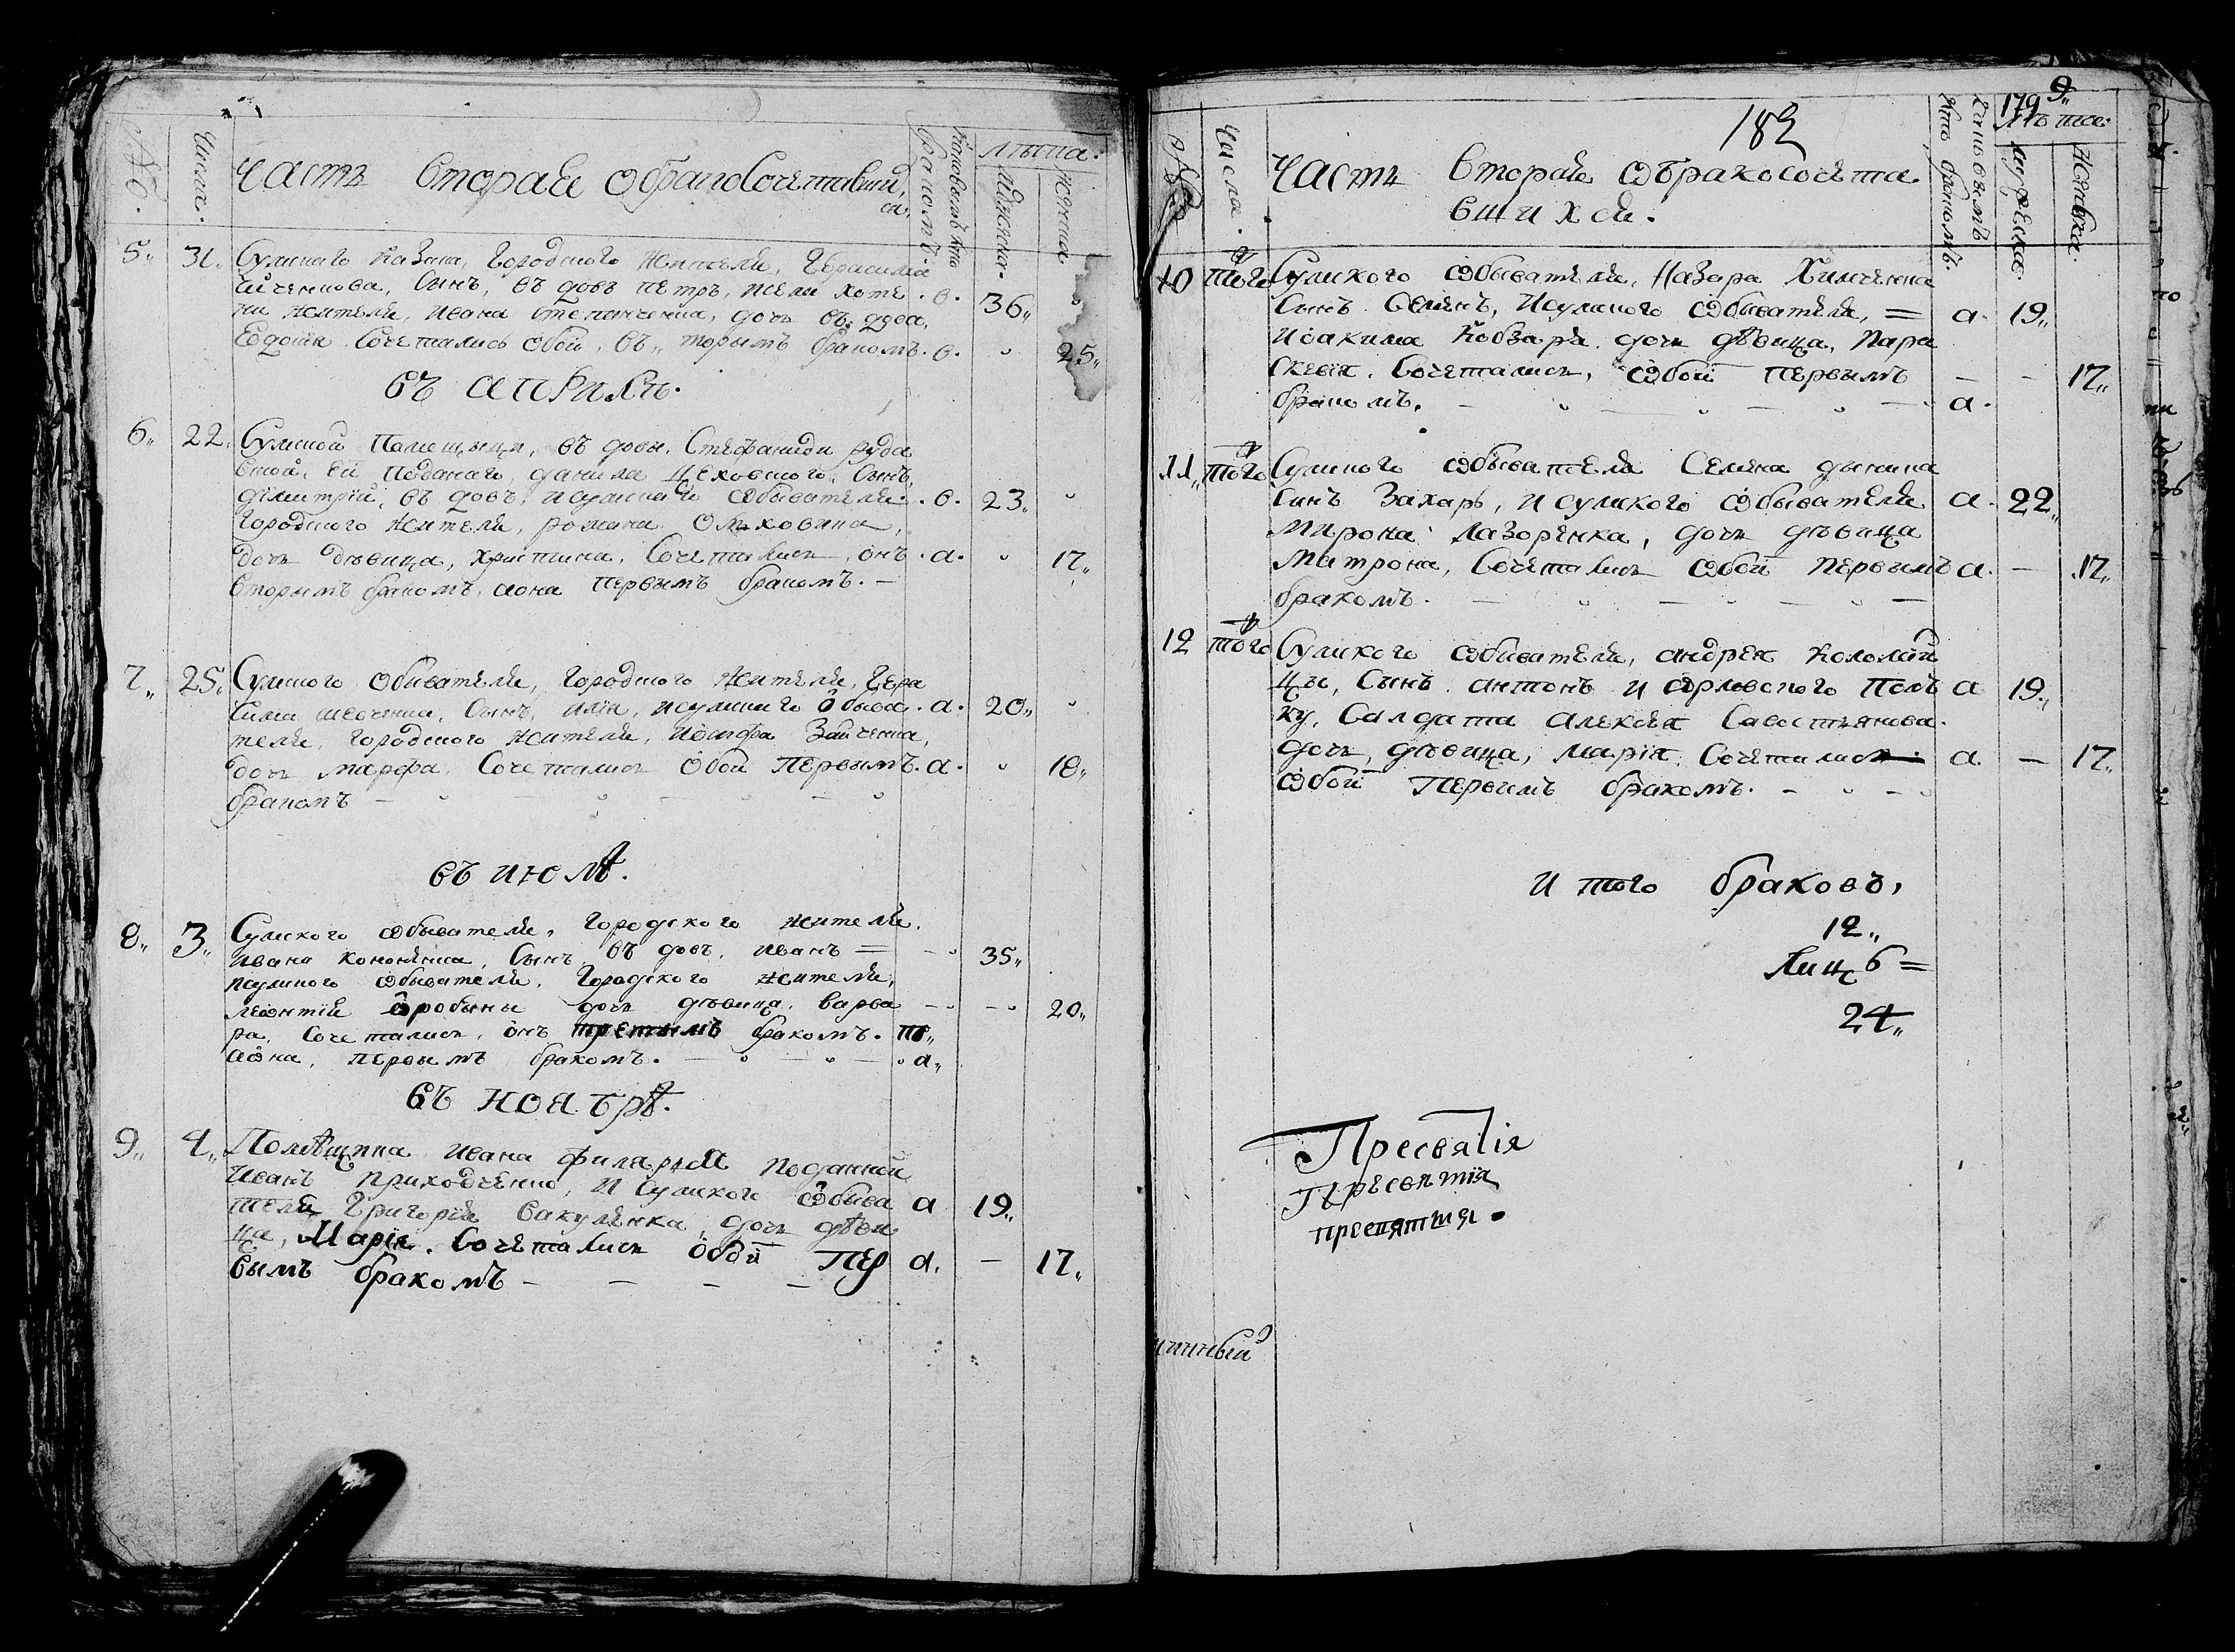 №.
Числа.
Часть вторая о бракосочетавших
ся.
Которымъ кто
бракомъ.
Лѣта:
Мужеска.
Женска
5„ 31. Сумскаго казака, городского жителя, Герасима
сынъ, въдовъ петръ, исела хоте . в. 36„
ни жителя, ивана степанченка, дочь въдова,
Евдокія. Сочетались обои, въ„ торымъ бракомъ. в. 25„
въ априлѣ.
6„ 22. Сумской помещици, въдовы, Стефаниди руда
вской, ея поданаго, данила Цеховского, Сынъ,
димитрій, въдовъ, исумскаго обывателя. . в. 23„
городского жителя, романа
дочь дѣвица, христина, Сочеталися, онъ . а. 17„
вторымъ бракомъ, аона первымъ бракомъ. —
7„ 25. Сумского обивателя, городского жителя, Гера
сима шевченка, Сынъ, илія, исумскаго обыва . а. 20„
теля, городского жителя, Іосифа Зайченка,
дочь марфа. Сочеталися обои первымъ. а. 18„
бракомъ —
въ июлѣ.
8„ 3„ Сумского обывателя, городского жителя,
ивана кононенка, Сынъ, въдовъ, иванъ = 35„
исумского обывателя, городского жителя,
леонтія дочь дѣвица, варва 20„
ра, Сочеталися, онъ третьимъ бракомъ. т„
аона, первымъ бракомъ. — а„
въ ноябрѣ.
9„ 4„ Помѣщика ивана поданной
иванъ приходченко, и Сумского обыва а 19„
теля Григорія вакуленка, дочь дѣви
ца, Марія. Сочеталися обои пер а. — 17„
вымъ бракомъ — — — —
1799„
182
№
Числа.
Часть вторая обракосочета.
вшихся.
Которымъ
кто бракомъ.
Лѣта:
Мужеска:
Женска.
10 того Сумского обывателя, Назара Химченка
Сынъ Семенъ, исумского обывателя, = а. 19„
иоакима кобзаря, дочь дѣвица, Пара
скевія, Сочеталися, обои первымъ — — 17„
бракомъ. — а.
11„ того Сумского обывателя Семена
синъ Захарь, и сумского обывателя а. 22„
мирона Лазоренка, дочь дѣвица
матрона, Сочеталися обои первимъ а. — 17„
бракомъ. —
12 того Сумского обивателя, андрея коломій
цы, Сынъ антонъ и орловского полъ а 19„
ку, Салдата алексѣя Савостьянова.
дочь, дѣвица, марія, Сочеталися а. — 17„
обои первимъ бракомъ. —
и того браковъ,
12„
Лицъ =
24„
Пресвятія
Пресвятія
пресвятия.